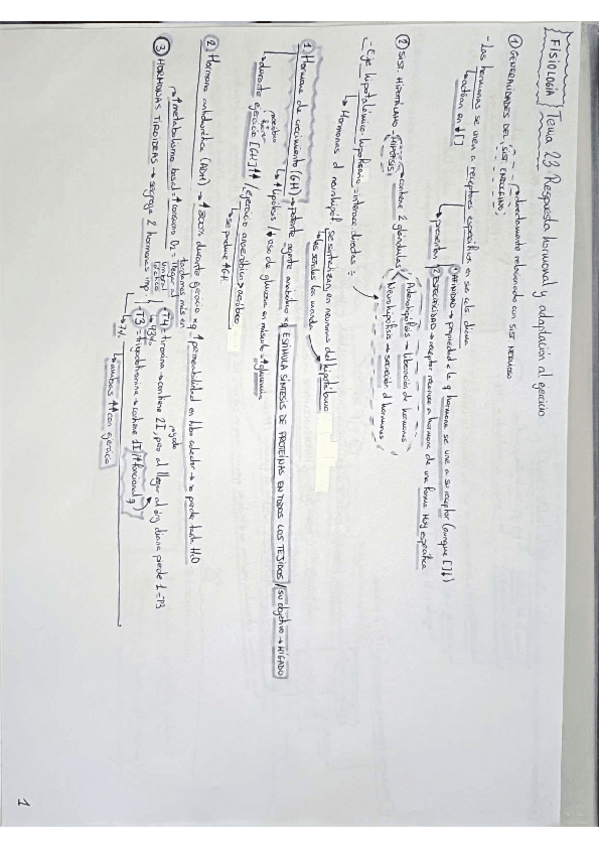 FISIOLOGÍA Tema 23 Respuesta hormonal y adaptación al ejercicio
① GENERALIDADES DEL SIST. ENDOCRINO: → directamente relacionado con SIST. NERVIOSO
- Las hormonas se unen a receptores específicos en sus céls. diana
↳ actúan en ↓[ ]
↳ presentan
① AFINIDAD → propiedad x la q hormona se une a su receptor (aunque [ ]↓)
② ESPECIFICIDAD → receptor reconoce a hormona de una forma muy específica
② SIST. HIPOTÁLAMO - HIPÓFISIS: → contiene 2 glándulas
Adenohipófisis → liberación de hormonas
Neurohipófisis → secreción d hormonas
- Eje hipotalámico-hipofisario → interacc. directas:
↳ Hormonas d neurohipóf. se sintetizan en neuronas del hipotálamo
① Hormona de crecimiento (GH) → potente agente anabólico xq ESTIMULA SÍNTESIS DE PROTEÍNAS EN TODOS LOS TEJIDOS / su objetivo → HÍGADO
↳ ↑ lipólisis / ↓ uso de glucosa en músculo = ↑ glucemia
↳ durante ejercicio [GH]↑↑ / Ejercicio anaeróbico > aeróbico
↳ se produce ↑GH
② Hormona antidiurética (ADH) → ↑ 800% durante ejercicio xq ↑ permeabilidad en tubo colector → no pierde tanta H₂O
③ HORMONAS TIROIDEAS → secrega 2 hormonas imp.
↳ ↑ metabolismo basal / ↑ consumo O₂ = llegar al umbral láctico
T4 = tiroxina → contiene 2I, pero al llegar al órg diana pierde 1 = T3
↳ 93%
T3 = triyodotironina → contiene 1I (↑ funcional)
↳ 7%
↳ ambas ↑↑ con ejercicio
1